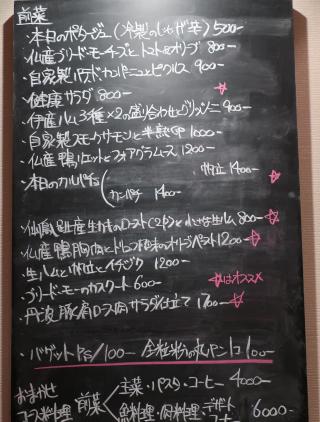 前菜
・本日のポタージュ(冷製のじゃが芋) 500-
・仏産ブリードモーチーズとトマト&オリーブ 800-
・自家製パテドカンパーニュとピクルス 900-
・健康サラダ 800- ☆
・伊産ハム3種×2の盛り合わせとグリッシーニ 900-
・自家製スモークサーモンと半熟卵 1000-
・仏産鴨リエットとフォアグラムース 1200-
・本日のカルパッチョ 帆立 1400- ☆
カンパチ 1400-
・仙鳳趾産生かきのロースト(2P)と小さな生ハム 800- ☆
・仏産鴨胸肉と 1200- ☆
・生ハムと帆立とイチジク 1200-
・ブリードモーのカスクート 600- ☆はオススメ
・丹波豚肩ロース肉サラダ仕立て 1700- ☆
・バゲット1Ps/100- 全粒粉の丸パン1コ100-
おまかせコース料理 前菜 主菜・パスタ・コーヒー 4000-
魚料理・肉料理・デザート コーヒー 6000-